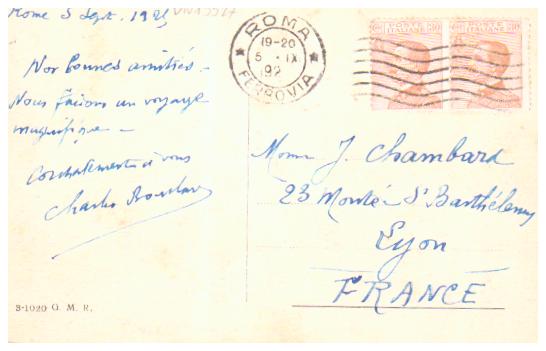 Rome 5 Sept. 192
ROMA
19-20
5 IX
192
FERROVIA
POSTE ITALIANE
POSTE ITALIANE
Nos bonnes amitiés -
Nous faisons un voyage
magnifique -
Cordialement à vous
Charles
Mme J. Chambard
23 Monté St Barthélemy
Lyon
FRANCE
3-1020 G. M. R.